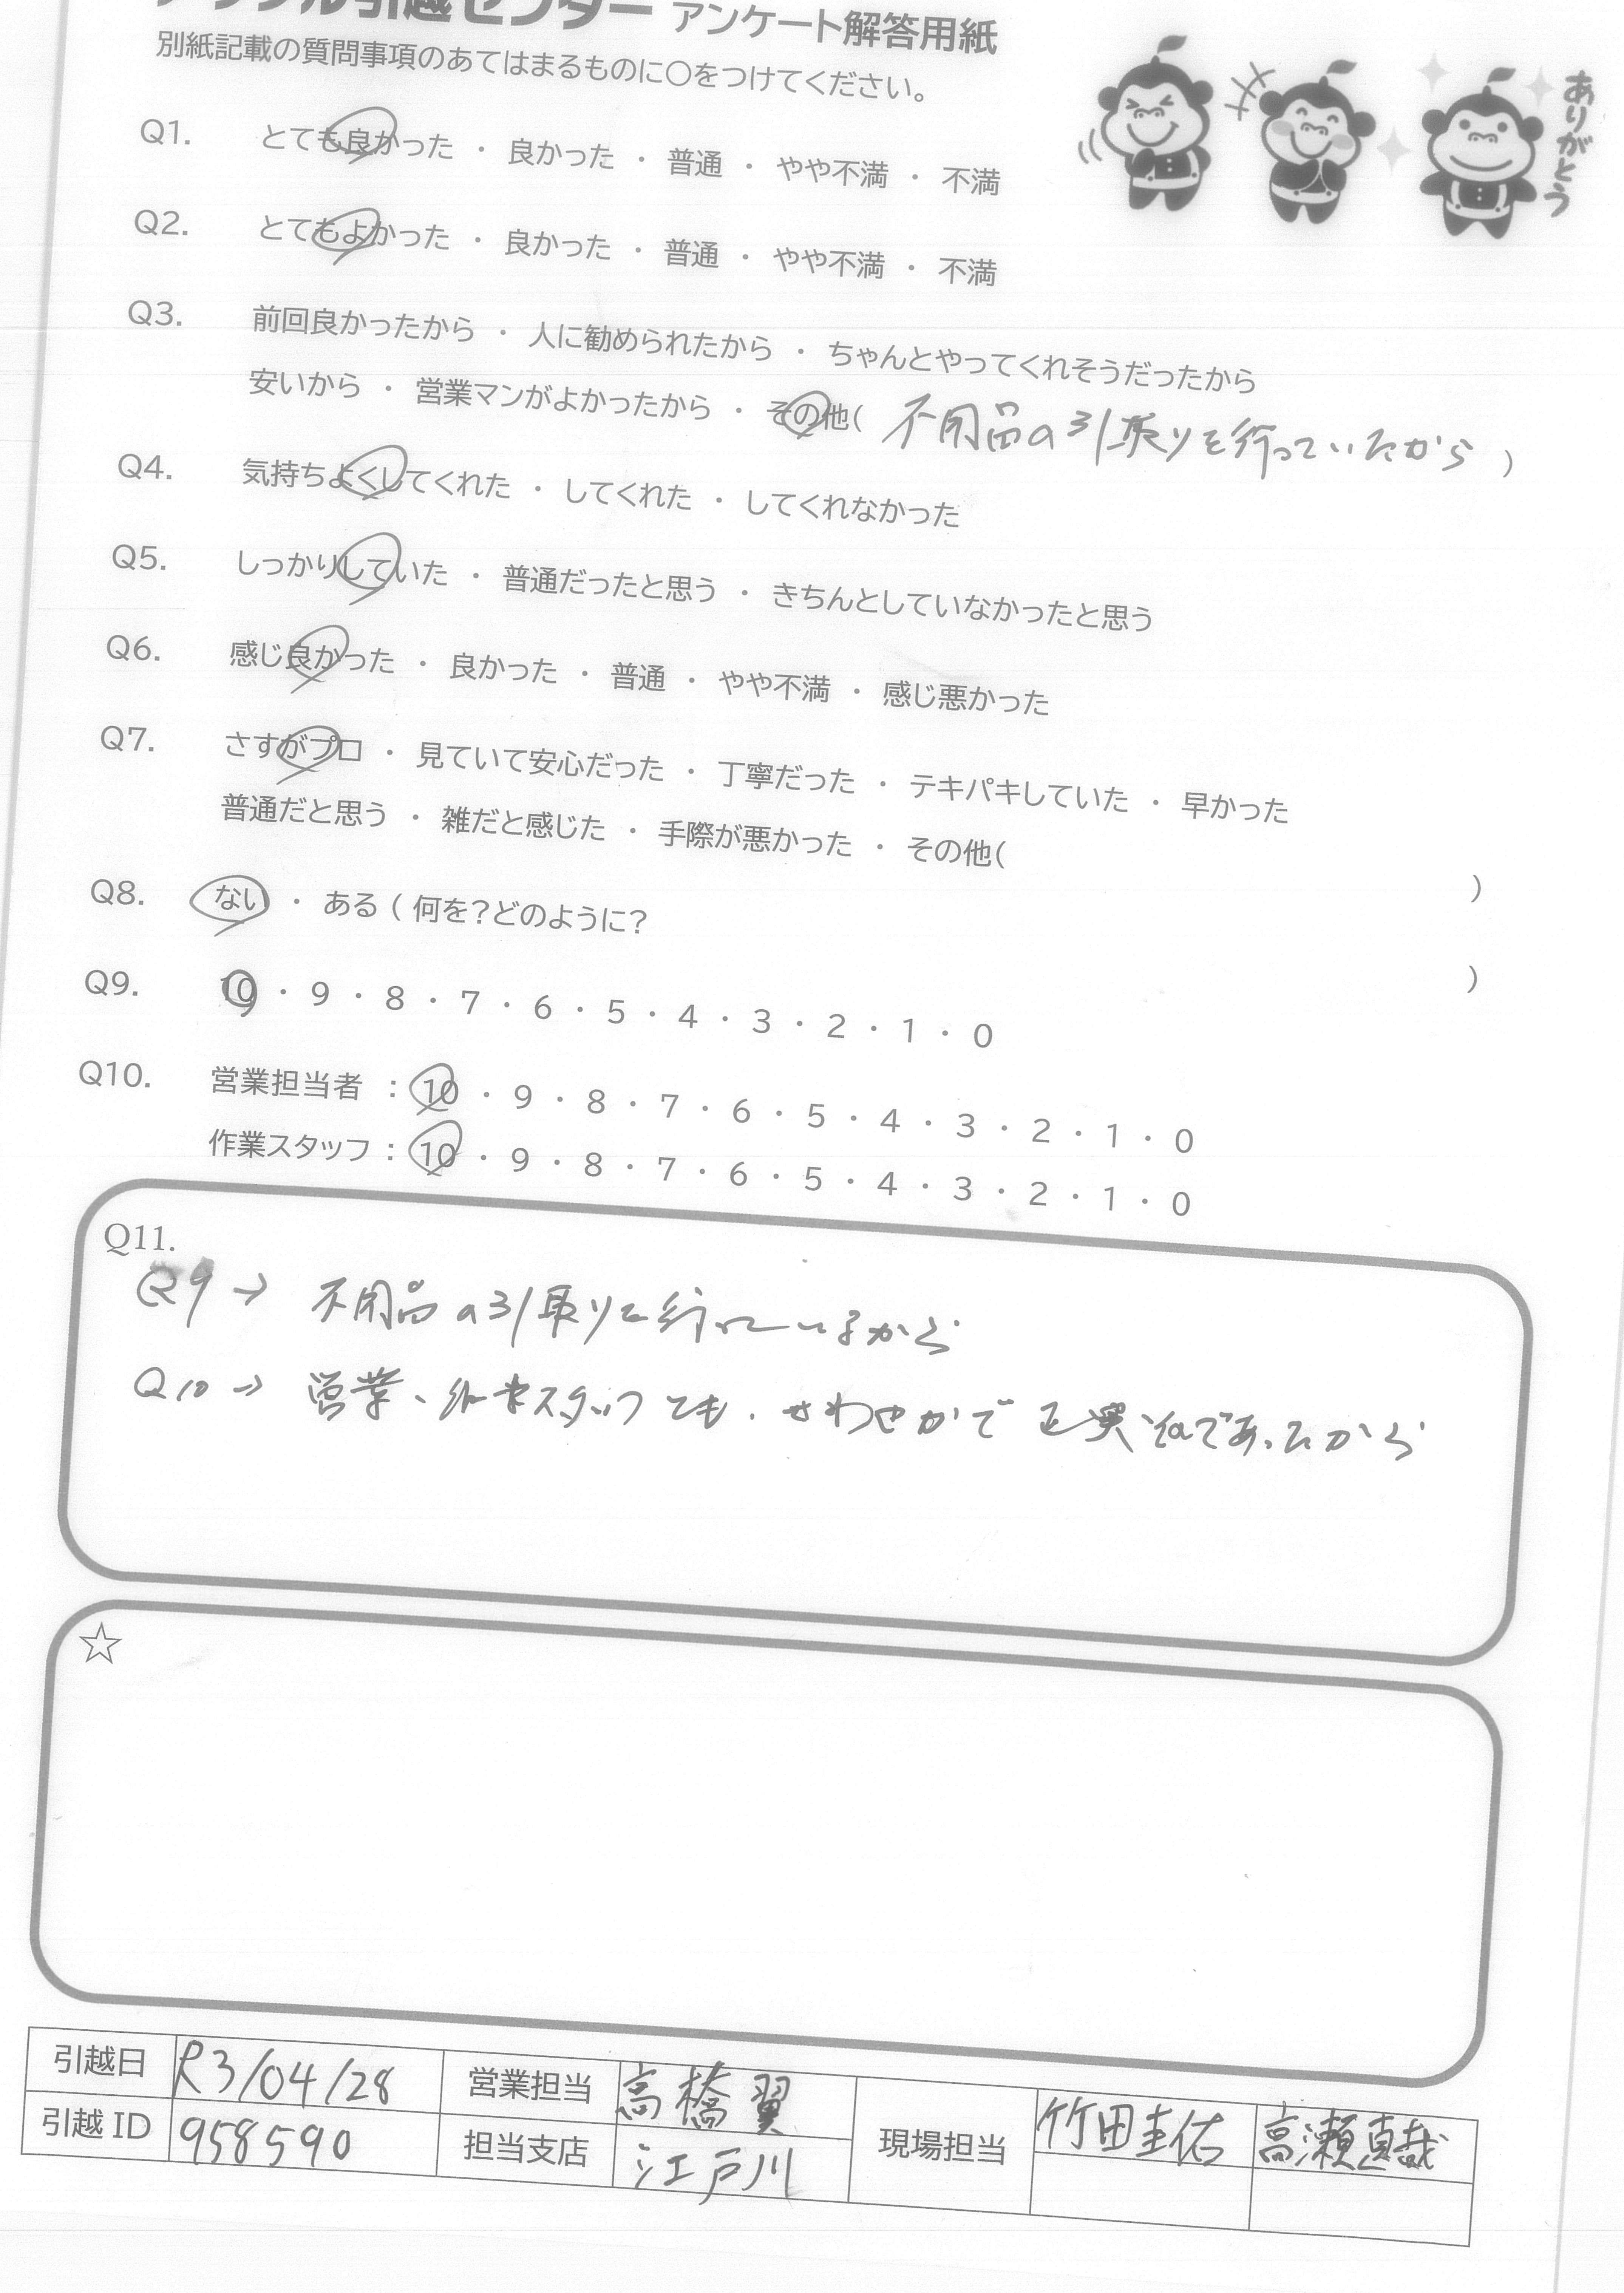 引越センター アンケート解答用紙
別紙記載の質問事項のあてはまるものに〇をつけてください。
ありがとう
Q1. とても良かった ・ 良かった ・ 普通 ・ やや不満 ・ 不満
Q2. とてもよかった ・ 良かった ・ 普通 ・ やや不満 ・ 不満
Q3. 前回良かったから ・ 人に勧められたから ・ ちゃんとやってくれそうだったから
安いから ・ 営業マンがよかったから ・ その他( 不用品の引取りを行っていたから )
Q4. 気持ちよくしてくれた ・ してくれた ・ してくれなかった
Q5. しっかりしていた ・ 普通だったと思う ・ きちんとしていなかったと思う
Q6. 感じ良かった ・ 良かった ・ 普通 ・ やや不満 ・ 感じ悪かった
Q7. さすがプロ ・ 見ていて安心だった ・ 丁寧だった ・ テキパキしていた ・ 早かった
普通だと思う ・ 雑だと感じた ・ 手際が悪かった ・ その他( )
Q8. ない ・ ある ( 何を?どのように? )
Q9. 10 ・ 9 ・ 8 ・ 7 ・ 6 ・ 5 ・ 4 ・ 3 ・ 2 ・ 1 ・ 0
Q10. 営業担当者 : 10 ・ 9 ・ 8 ・ 7 ・ 6 ・ 5 ・ 4 ・ 3 ・ 2 ・ 1 ・ 0
作業スタッフ : 10 ・ 9 ・ 8 ・ 7 ・ 6 ・ 5 ・ 4 ・ 3 ・ 2 ・ 1 ・ 0
Q11.
Q9 → 不用品の引取りを行っているから
Q10 → 営業、作業スタッフとも、さわやかで であったから
☆
引越日 R3/04/28 営業担当 高橋翼 現場担当 竹田圭佑 高瀬真哉
引越 ID 958590 担当支店 江戸川